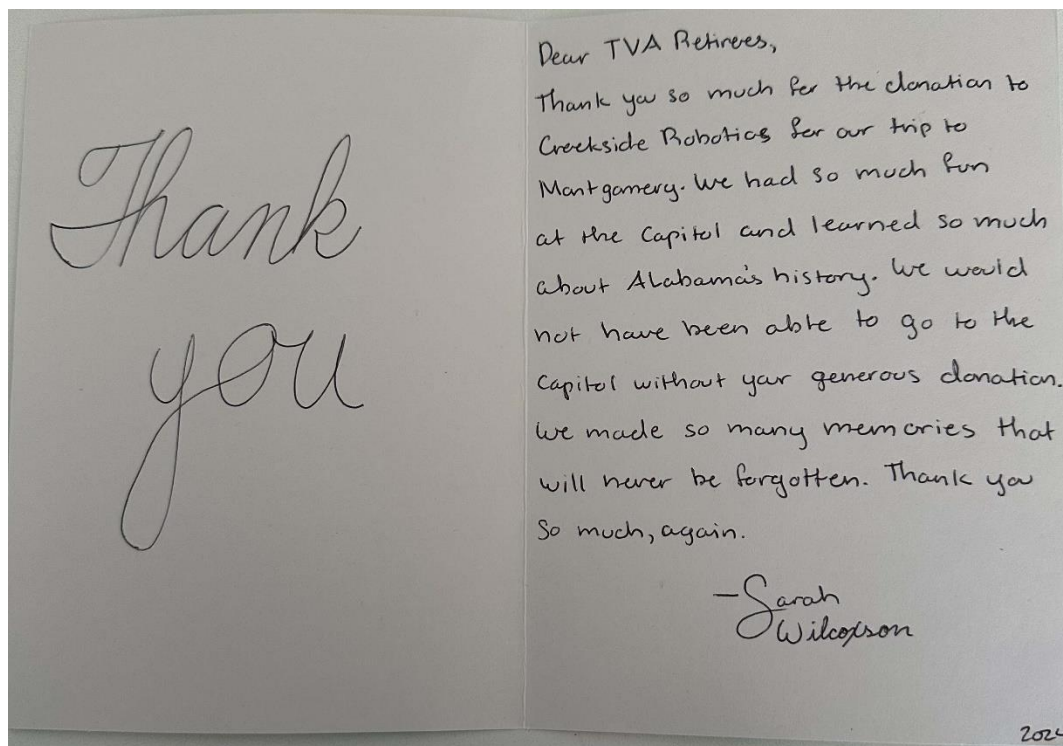 Thank
you
Dear TVA Retirees,
Thank you so much for the donation to
Creekside Robotics for our trip to
Montgomery. We had so much fun
at the Capitol and learned so much
about Alabama's history. We would
not have been able to go to the
Capitol without your generous donation.
We made so many memories that
will never be forgotten. Thank you
so much, again.
-Sarah
Wilcoxson